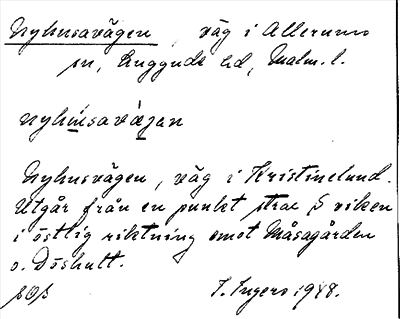 Nyhusavägen, väg i Allerums
sn, Luggude hd, Malm. l.
nyhúsavä̀gan
Nyhusvägen, väg i Kristinelund.
Utgår från en punkt strax S viken
i östlig riktning emot Måsagården
o. Döshult.
T. Ingers 1948.